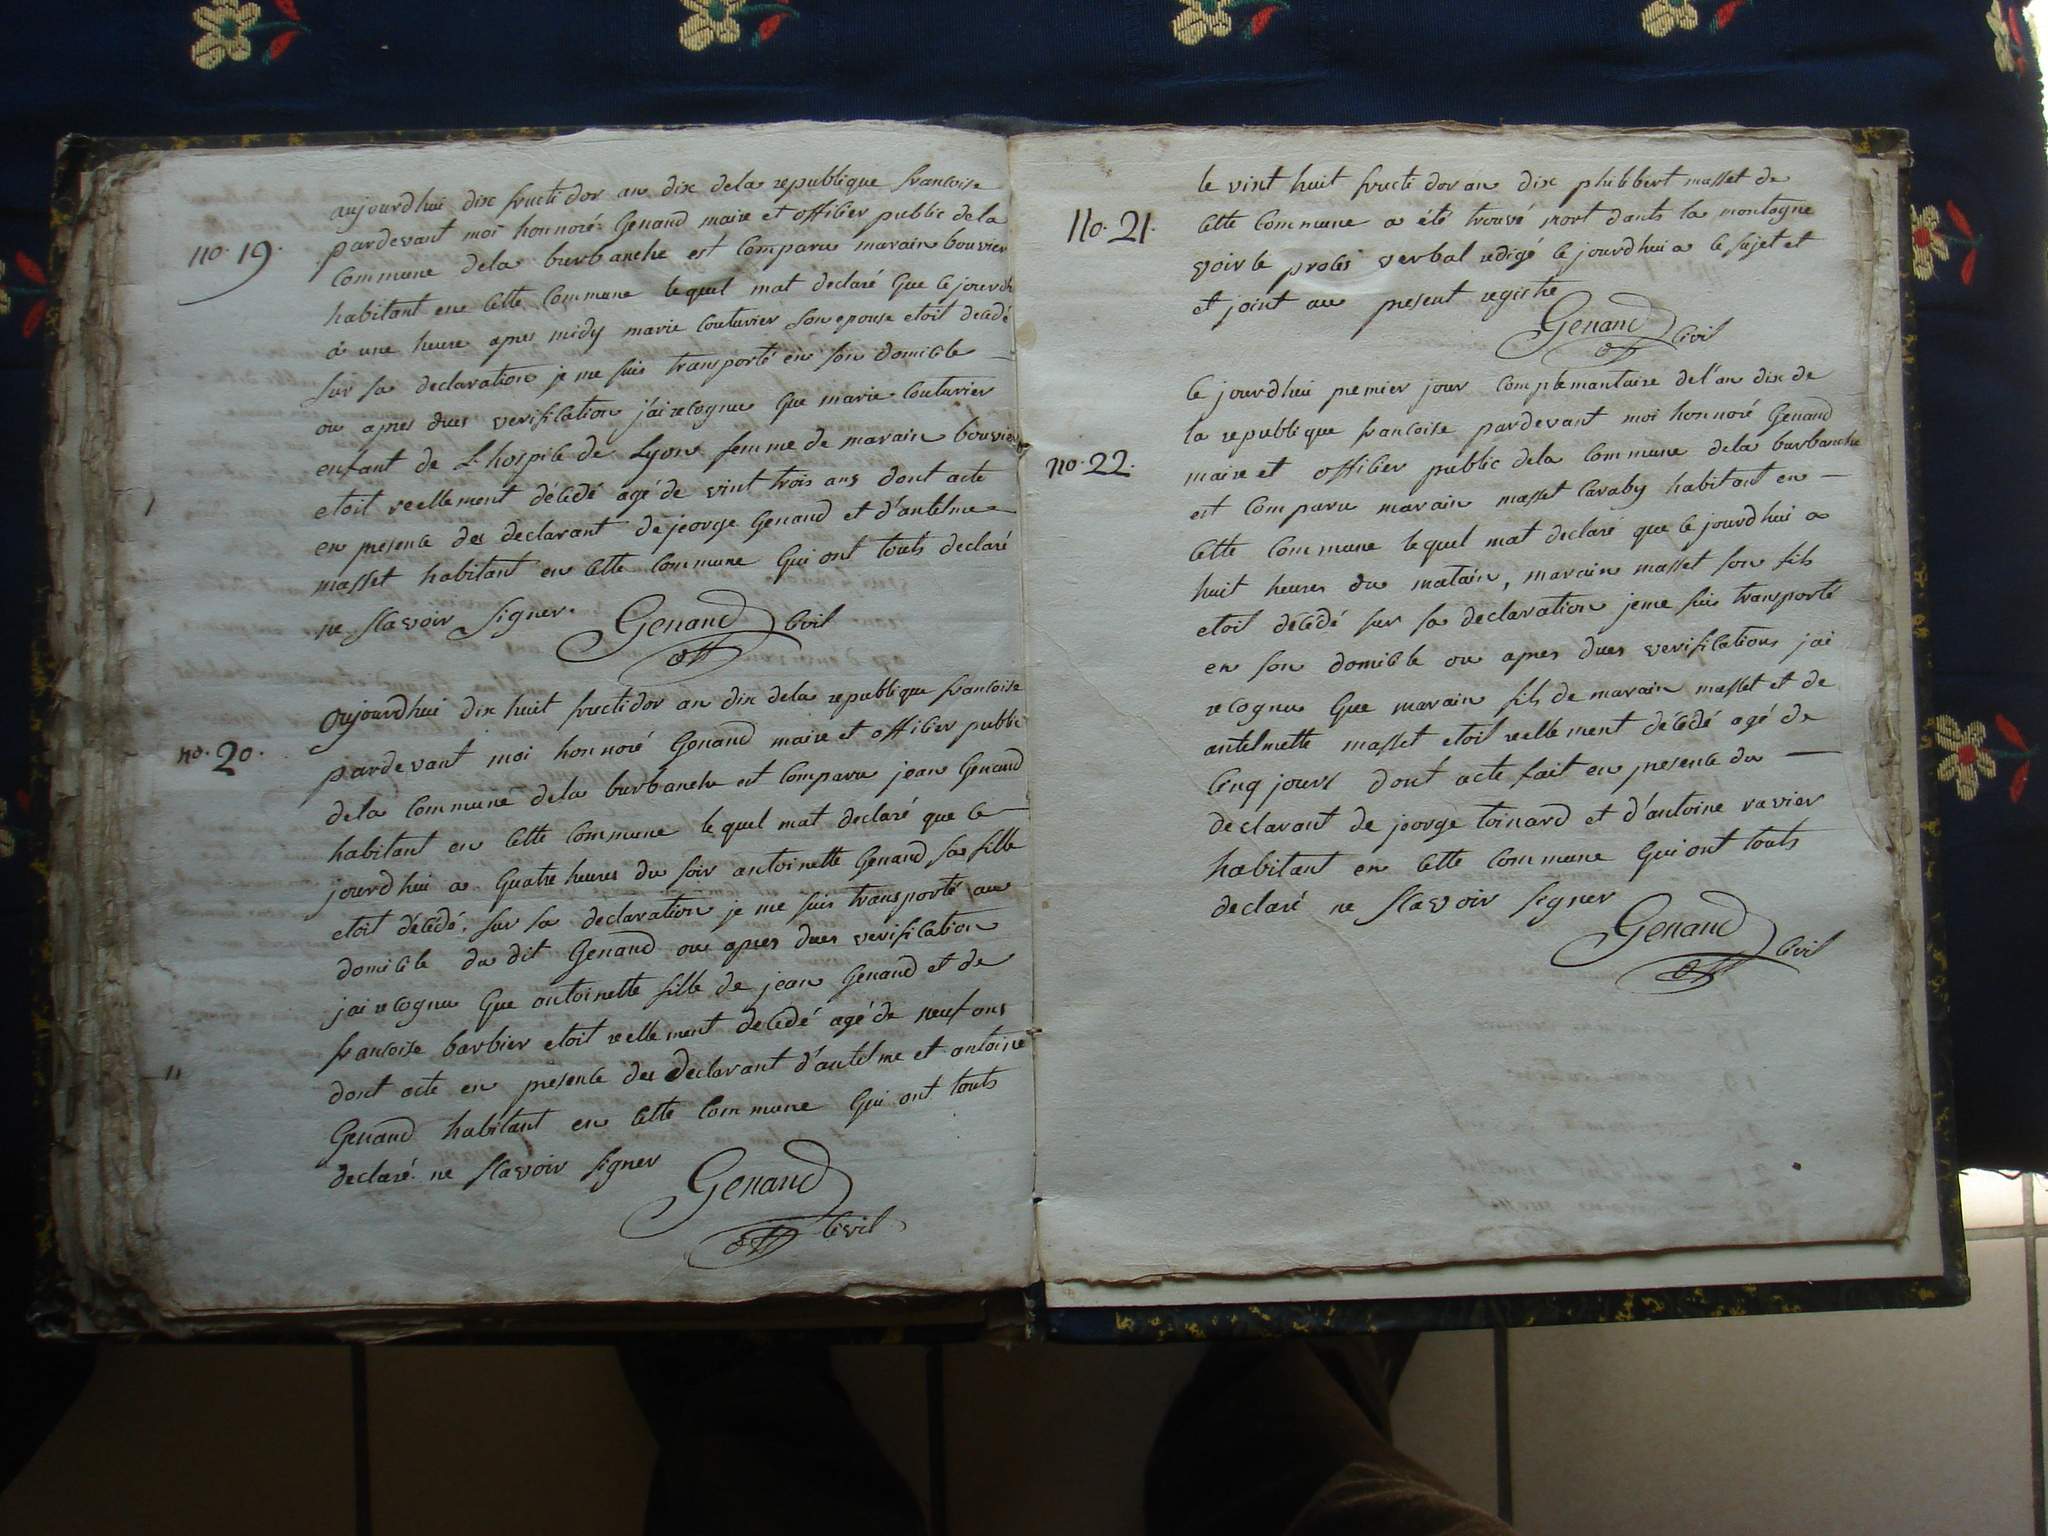 no. 19.
aujourdhui dix fructidor an dix dela republique francoise
pardevant moi honnoré Genand maire et officier public dela
Commune dela burbanche est Comparu marain bouvier
habitant en Cette Commune lequel mat declaré que cejourdh
a une heure apres midy marie Couturier Son epouse etoit décédé
sur sa declaration je me suis transporté en son domicile
ou apres dues verification j'ai recognu que marie Couturier
enfant de L'hospice de Lyon femme de marain bouvier
etoit reellement décédé agé de vint trois ans dont acte
en presence des declarant de jeorge Genand et d'antelme
masset habitant en Cette Commune Qui ont touts declaré
ne Scavoir Signer. Genand off Civil
no. 20.
Aujourdhui dix huit fructidor an dix dela republique francoise
pardevant moi honnoré Genand maire et officier public
dela Commune dela burbanche est Comparu jean Genand
habitant en Cette Commune lequel mat declaré que ce
jourdhui a Quatre heures du soir antoinette Genand sa fille
etoit décédé, sur sa declaration je me suis transporté au
domicile du dit Genand ou apres dues verification
jai recognu Que antoinette fille de jean Genand et de
francoise barbier etoit reellement decédé agé de neuf ans
dont acte en presence des declarant d'antelme et antoine
Genand habitant en Cette Commune Qui ont touts
declaré ne Scavoir Signer Genand
off Civil
no. 21.
le vint huit fructidor an dix philibbert masset de
Cette Commune a été trouvé mort dants la montagne
voir le procés verbal redigé cejourdhui a ce sujet et
et joint au present registre
Genand off Civil
no. 22.
Cejourdhui premier jour Complemantaire del'an dix de
la republique francoise pardevant moi honnoré Genand
maire et officier public dela Commune dela burbanche
est Comparu marain masset Caraby habitant en
Cette Commune lequel mat declaré que cejourdhui a
huit heures du matain, marain masset son fils
etoit décédé sur sa declaration jeme suis transporté
en son domicile ou apres dues verifications jai
recognu Que marain fils de marain masset et de
antelmette masset etoit reellement décédé agé de
Cinq jours dont acte fait en presence du
declarant de jeorge toinard et d'antoine ravier
habitant en Cette Commune Qui ont touts
declaré ne Scavoir Signer
Genand off Civil